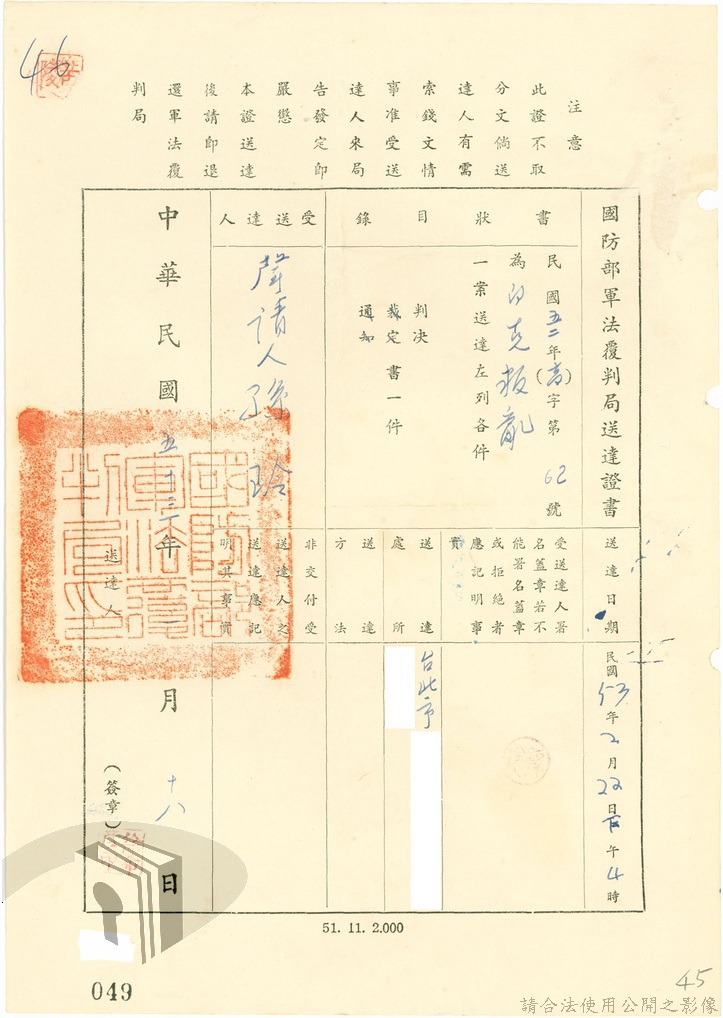 46
注意
此證不取
分文倘送
達人有需
索錢文情
事准受送
達人來局
告發定即
嚴懲
本證送達
後請即退
還軍法覆
判局
國防部軍法覆判局送達證書
書狀目錄
民國五二年(高)字第62號
為白克叛亂
一案送達左列各件
判決
裁定書一件
通知
受送達人
聲請人孫玲
送達日期
民國53年2月22日下午4時
受送達人署
名蓋章若不
能署名蓋章
或拒絕者
應記明事
實
送達處所
台北市
送達方法
非交付受
送達人之
送達應記
明其事實
中華民國五十三年二月十八日
送達人
(簽章)
國防部軍法覆判局印
51. 11. 2.000
049
45
請合法使用公開之影像